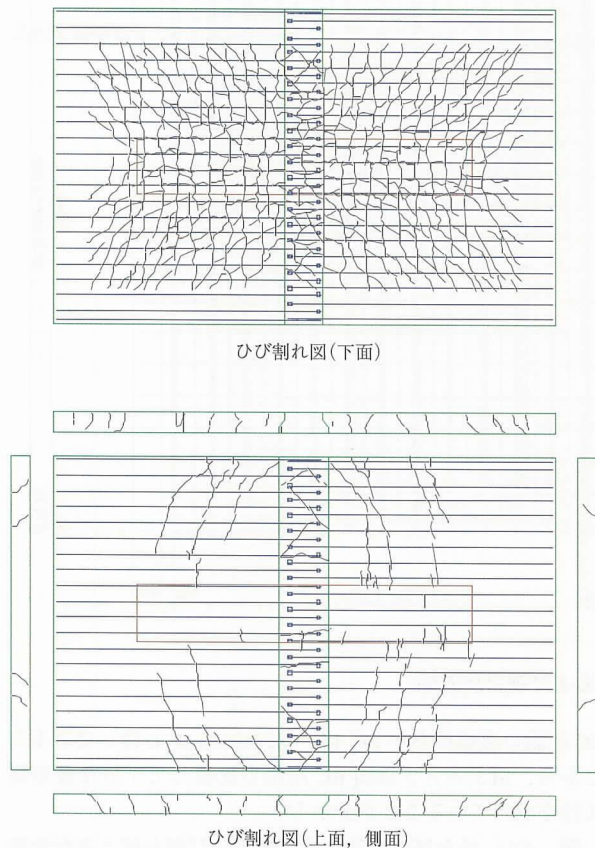 ひび割れ図(下面)
ひび割れ図(上面, 側面)